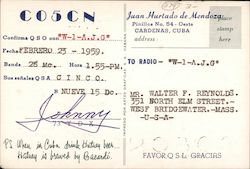 CO5CN
Confirma QSO con "W-1-A.J.G"
Fecha FEBRERO 23 - 1959.
Banda 28 MC. Hora 1.55-P.M.
Sus señales QSA C I N C O.
R NUEVE 15 Dc.
Johnny
PS. When in Cuba drink Hatuey beer.
Hatuey is brewed by Bacardi.
Juan Hurtado de Mendoza
Pinillos No. 54 - Oeste
CARDENAS, CUBA
address:
place
stamp
here
TO RADIO - "W-1-A.J.G"
MR. WALTER F. REYNOLDS.
351 NORTH ELM STREET.-
WESF BRIDGEWATER.-MASS.
-U-S-A-
FAVOR QSL GRACIAS